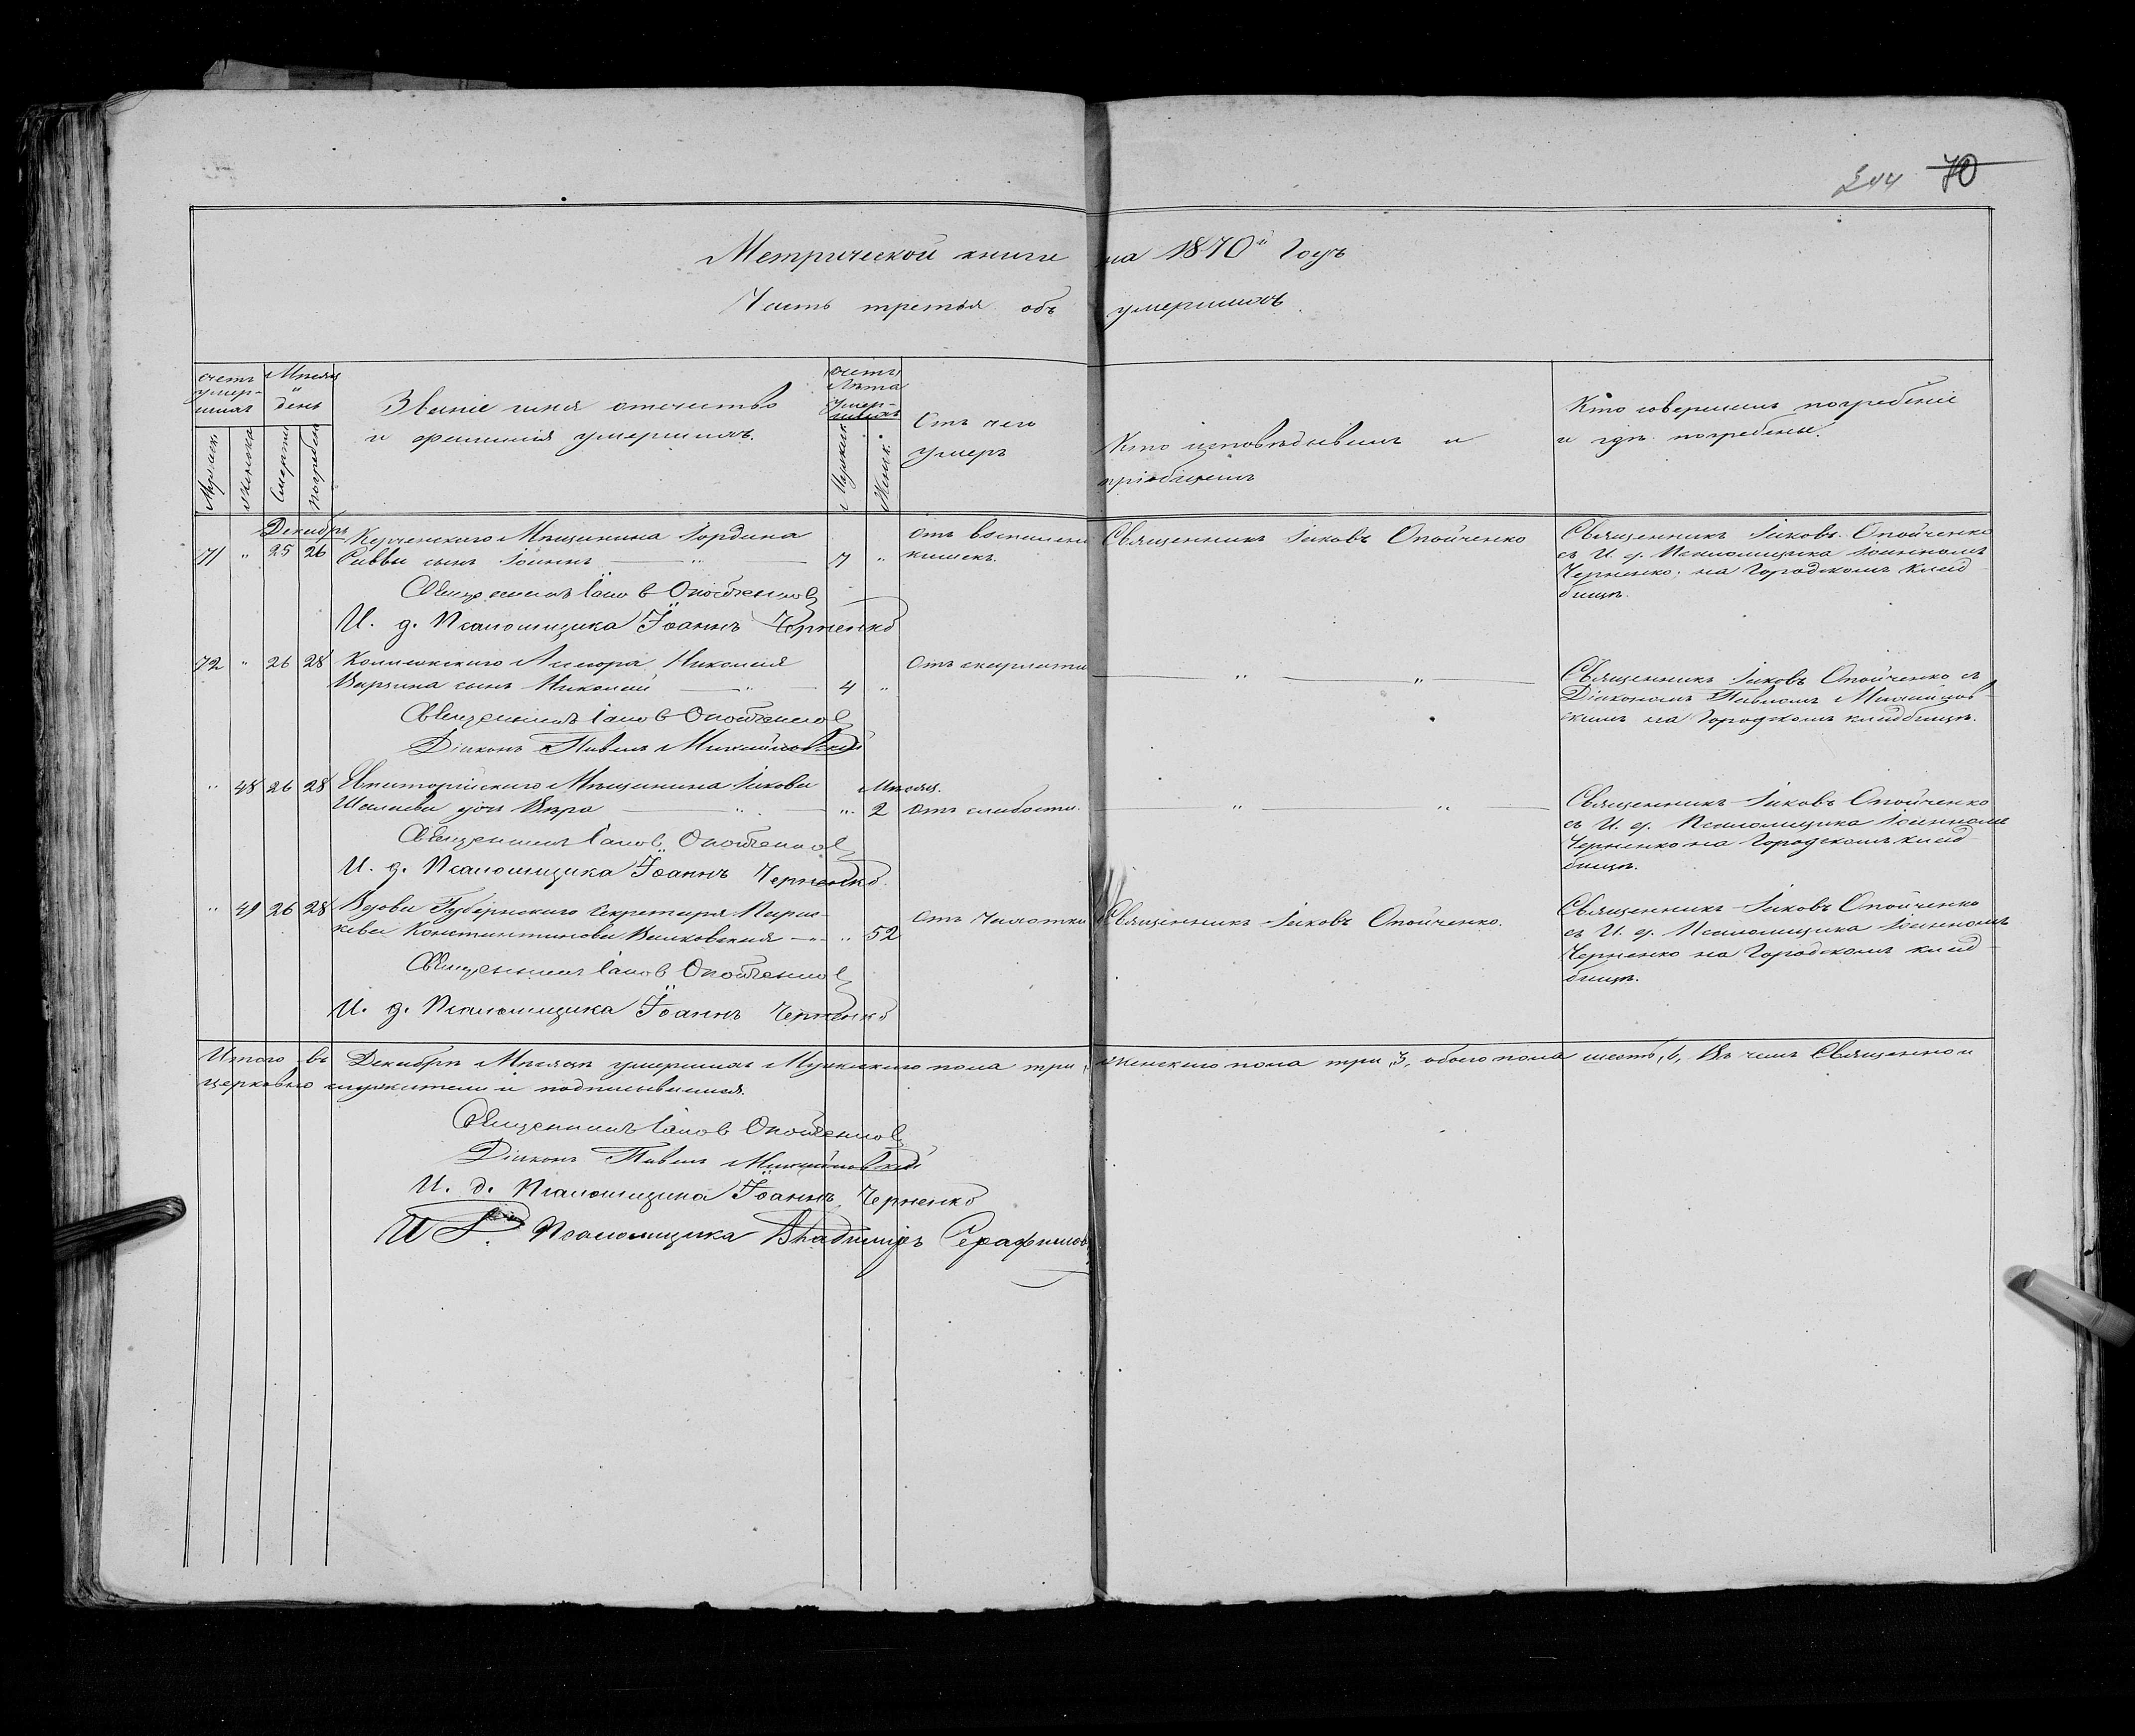 244 70
Метрической книги на 1870й Годъ
Часть третья объ умершихъ.
счетъ умер-шихъ
Мужск.
Женска
Мѣсяц и день
Смерти
погребен
Званіе имя отчество
и фамилія умершихъ.
счетъ Лѣта умер-шихъ
Мужск.
Женск.
Отъ чего
умеръ
Кто исповѣдывалъ и
пріобщалъ
Кто совершалъ погребеніе
и гдѣ погребены.
Декабрь
71 " 25 26 Керченскаго Мѣщанина Гордѣя
Саввы сынъ Іоаннъ — " — 7 "
отъ воспален
кишекъ.
Священникъ Іаковъ Опойченко
Священникъ Іаковъ Опойченко
съ И. д. Псаломщика Іоанномъ
Черненко, на Городскомъ клад-
бищѣ.
Священникъ Іаковъ Опойченко
И. д. Псаломщика Іоаннъ Черненко
72 " 26 28 Николая
сынъ Николай — " — 4 "
Отъ скарлати
" — "
Священникъ Іаковъ Опойченко съ
Діакономъ Павломъ Михайлов-
скимъ на Городскомъ кладбищѣ.
Священникъ Іаковъ Опойченко
Діаконъ Павелъ Михайловскій
" 48 26 28 Евпаторійскаго Мѣщанина Іакова
дочь Вѣра — " — " 2
Мѣсяц.
Отъ слабости.
" — "
Священникъ Іаковъ Опойченко
съ И. д. Псаломщика Іоанномъ
Черненко на Городскомъ клад-
бищѣ.
Священникъ Іаковъ Опойченко
И. д. Псаломщика Іоаннъ Черненко.
" 49 26 28 Вдова Губернскаго Секретаря Парас-
кева Константинова Волковская — " 52
Отъ Чахотки
Священникъ Іаковъ Опойченко.
Священникъ Іаковъ Опойченко
съ И. д. Псаломщика Іоанномъ
Черненко на Городскомъ клад-
бищѣ.
Священникъ Іаковъ Опойченко
И. д. Псаломщика Іоаннъ Черненко
Итого въ Декабрѣ Мѣсяцѣ умершихъ Мужескаго пола три, женскаго пола три, 3, обоего пола шесть, 6, Въ чемъ Священно и
церковно служители и подписываемся.
Священникъ Іаковъ Опойченко
Діаконъ Павелъ Михайловскій
И. д. Псаломщика Іоаннъ Черненко
И Д. Псаломщика Владиміръ Серафимов